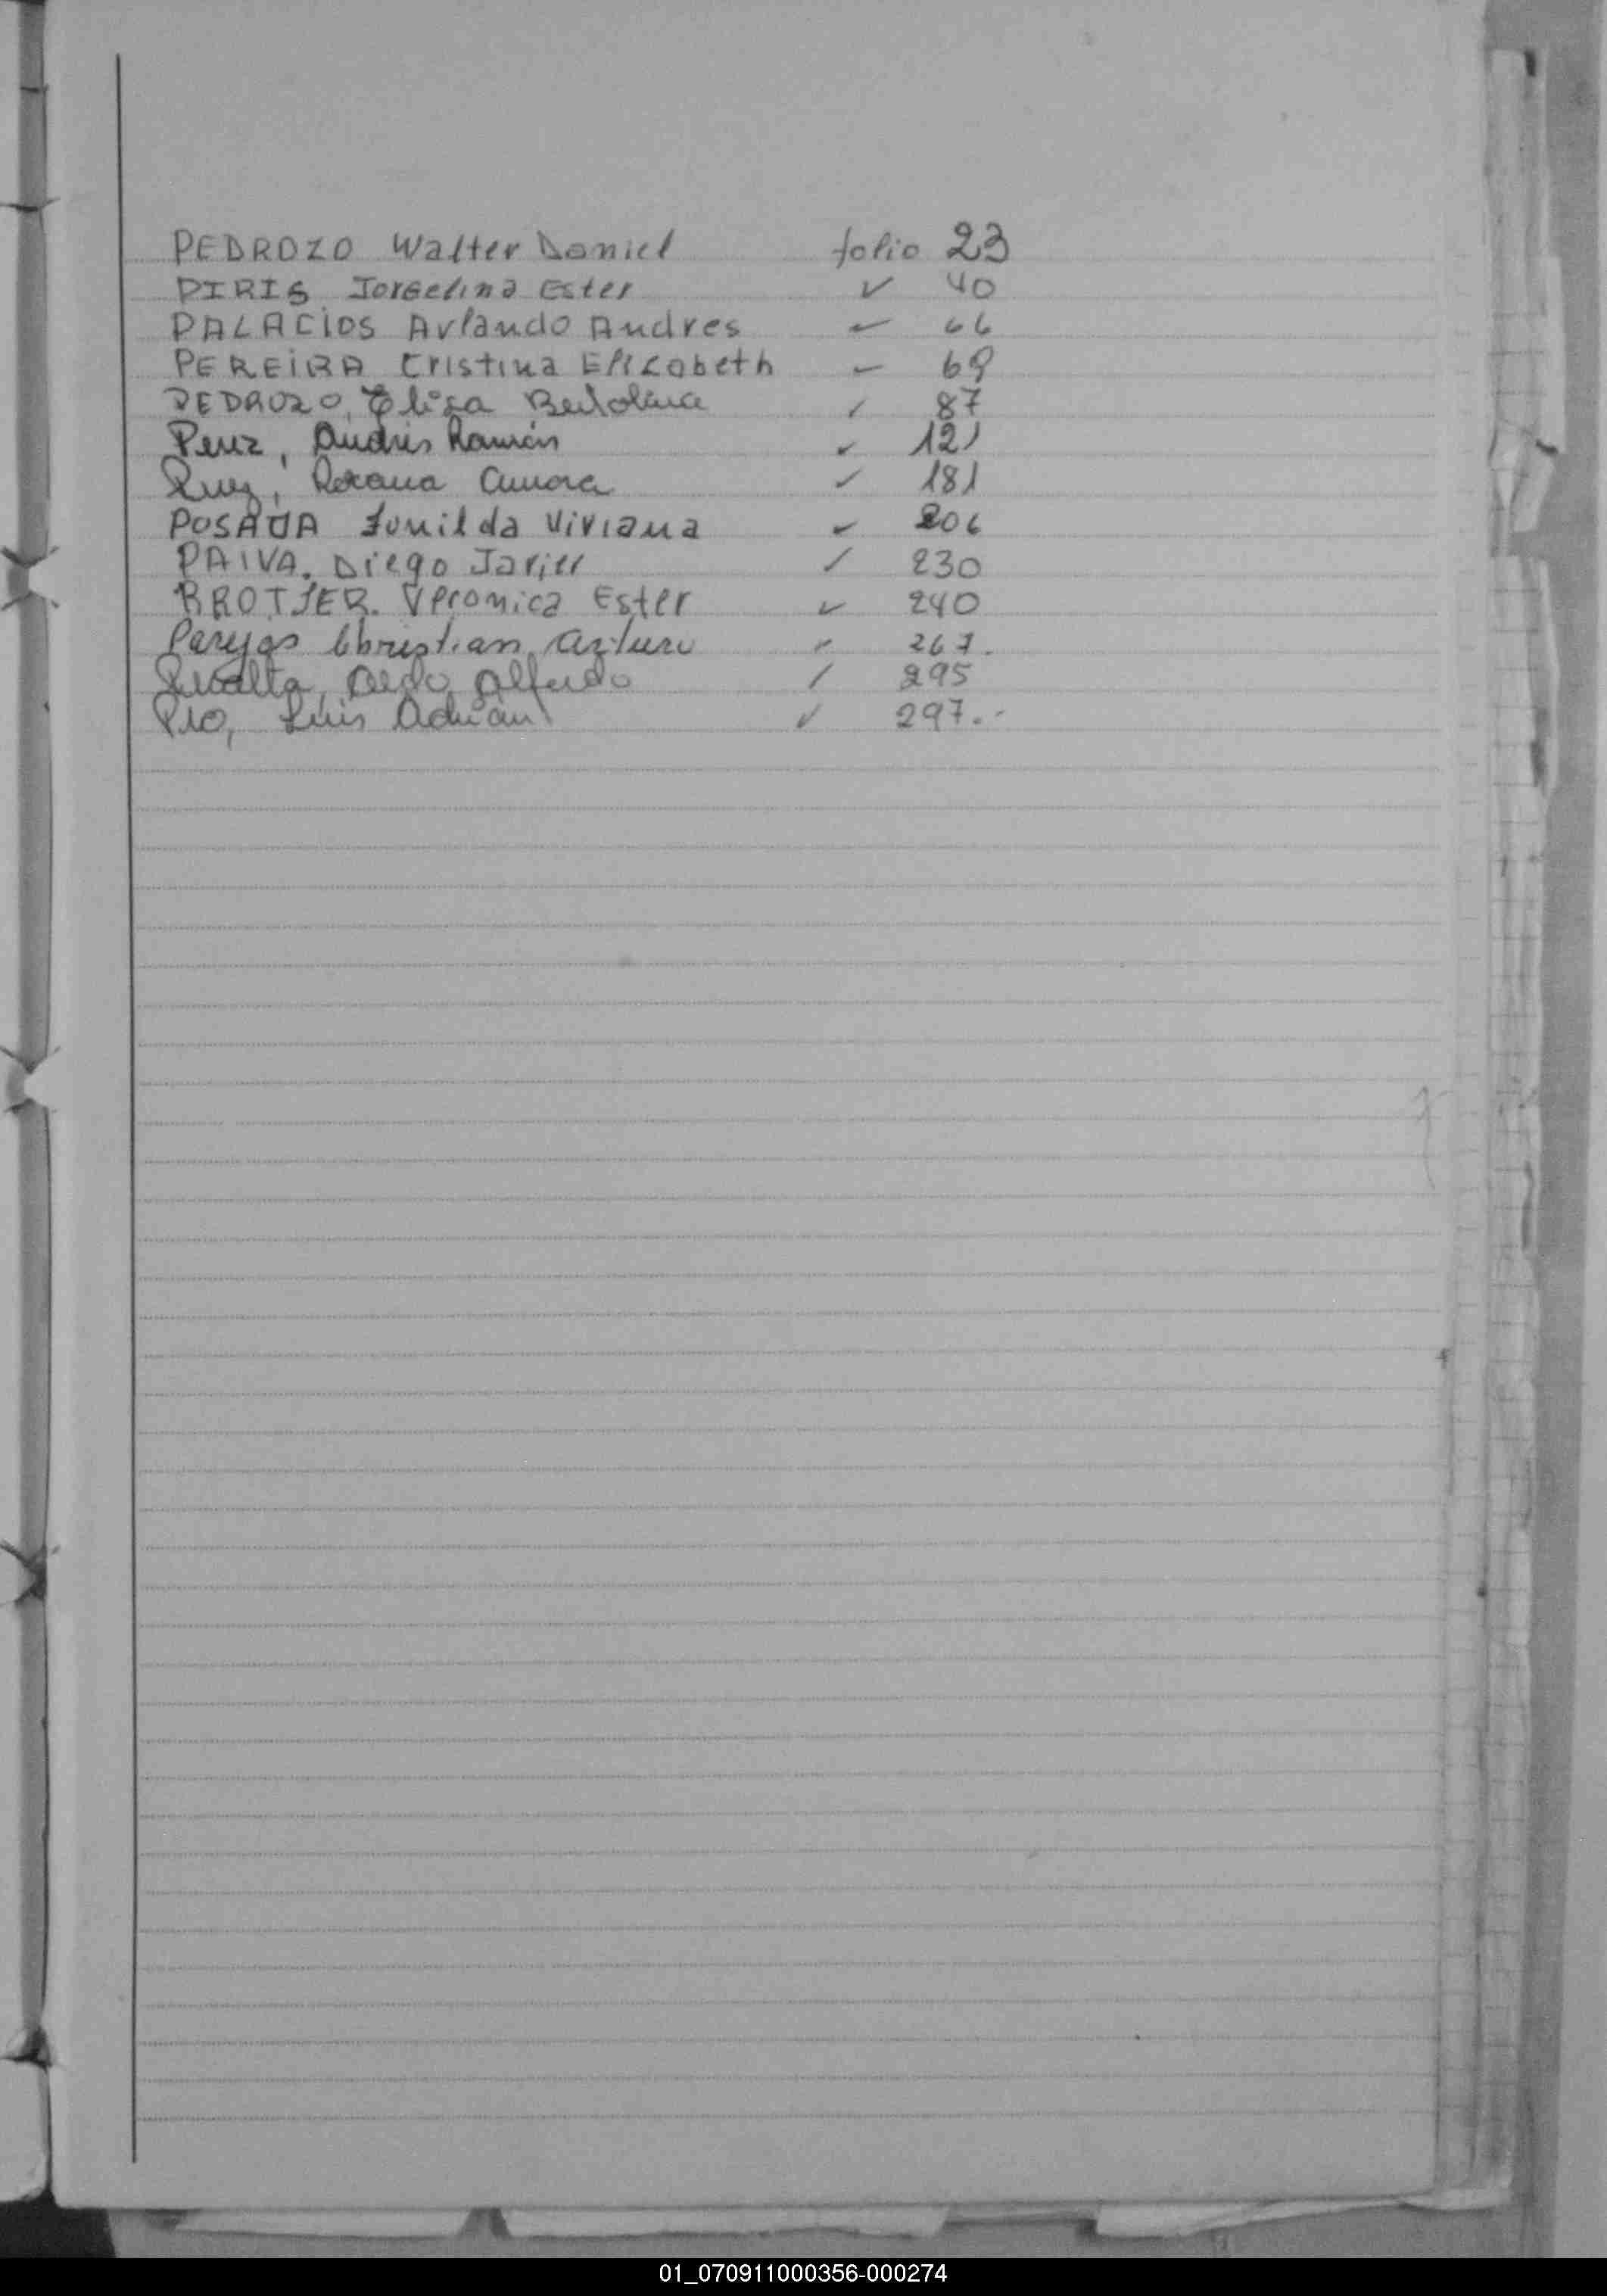 PEDROZO Walter Daniel folio 23
PIRIS Jorgelina Ester ✓ 40
PALACIOS Arlando Andres ✓ 66
PEREIRA Cristina Elizabeth ✓ 69
PEDROZO, Elisa ✓ 87
Perez, Andrés Ramón ✓ 121
Roxana ✓ 181
POSADA Junilda Viviana ✓ 206
PAIVA. Diego Javier ✓ 230
BROTIER. Veronica Ester ✓ 240
Christian Arturo ✓ 267.
Peralta, Aldo Alfredo ✓ 295
Pio, Luis Adrian ✓ 297.-
01_070911000356-000274